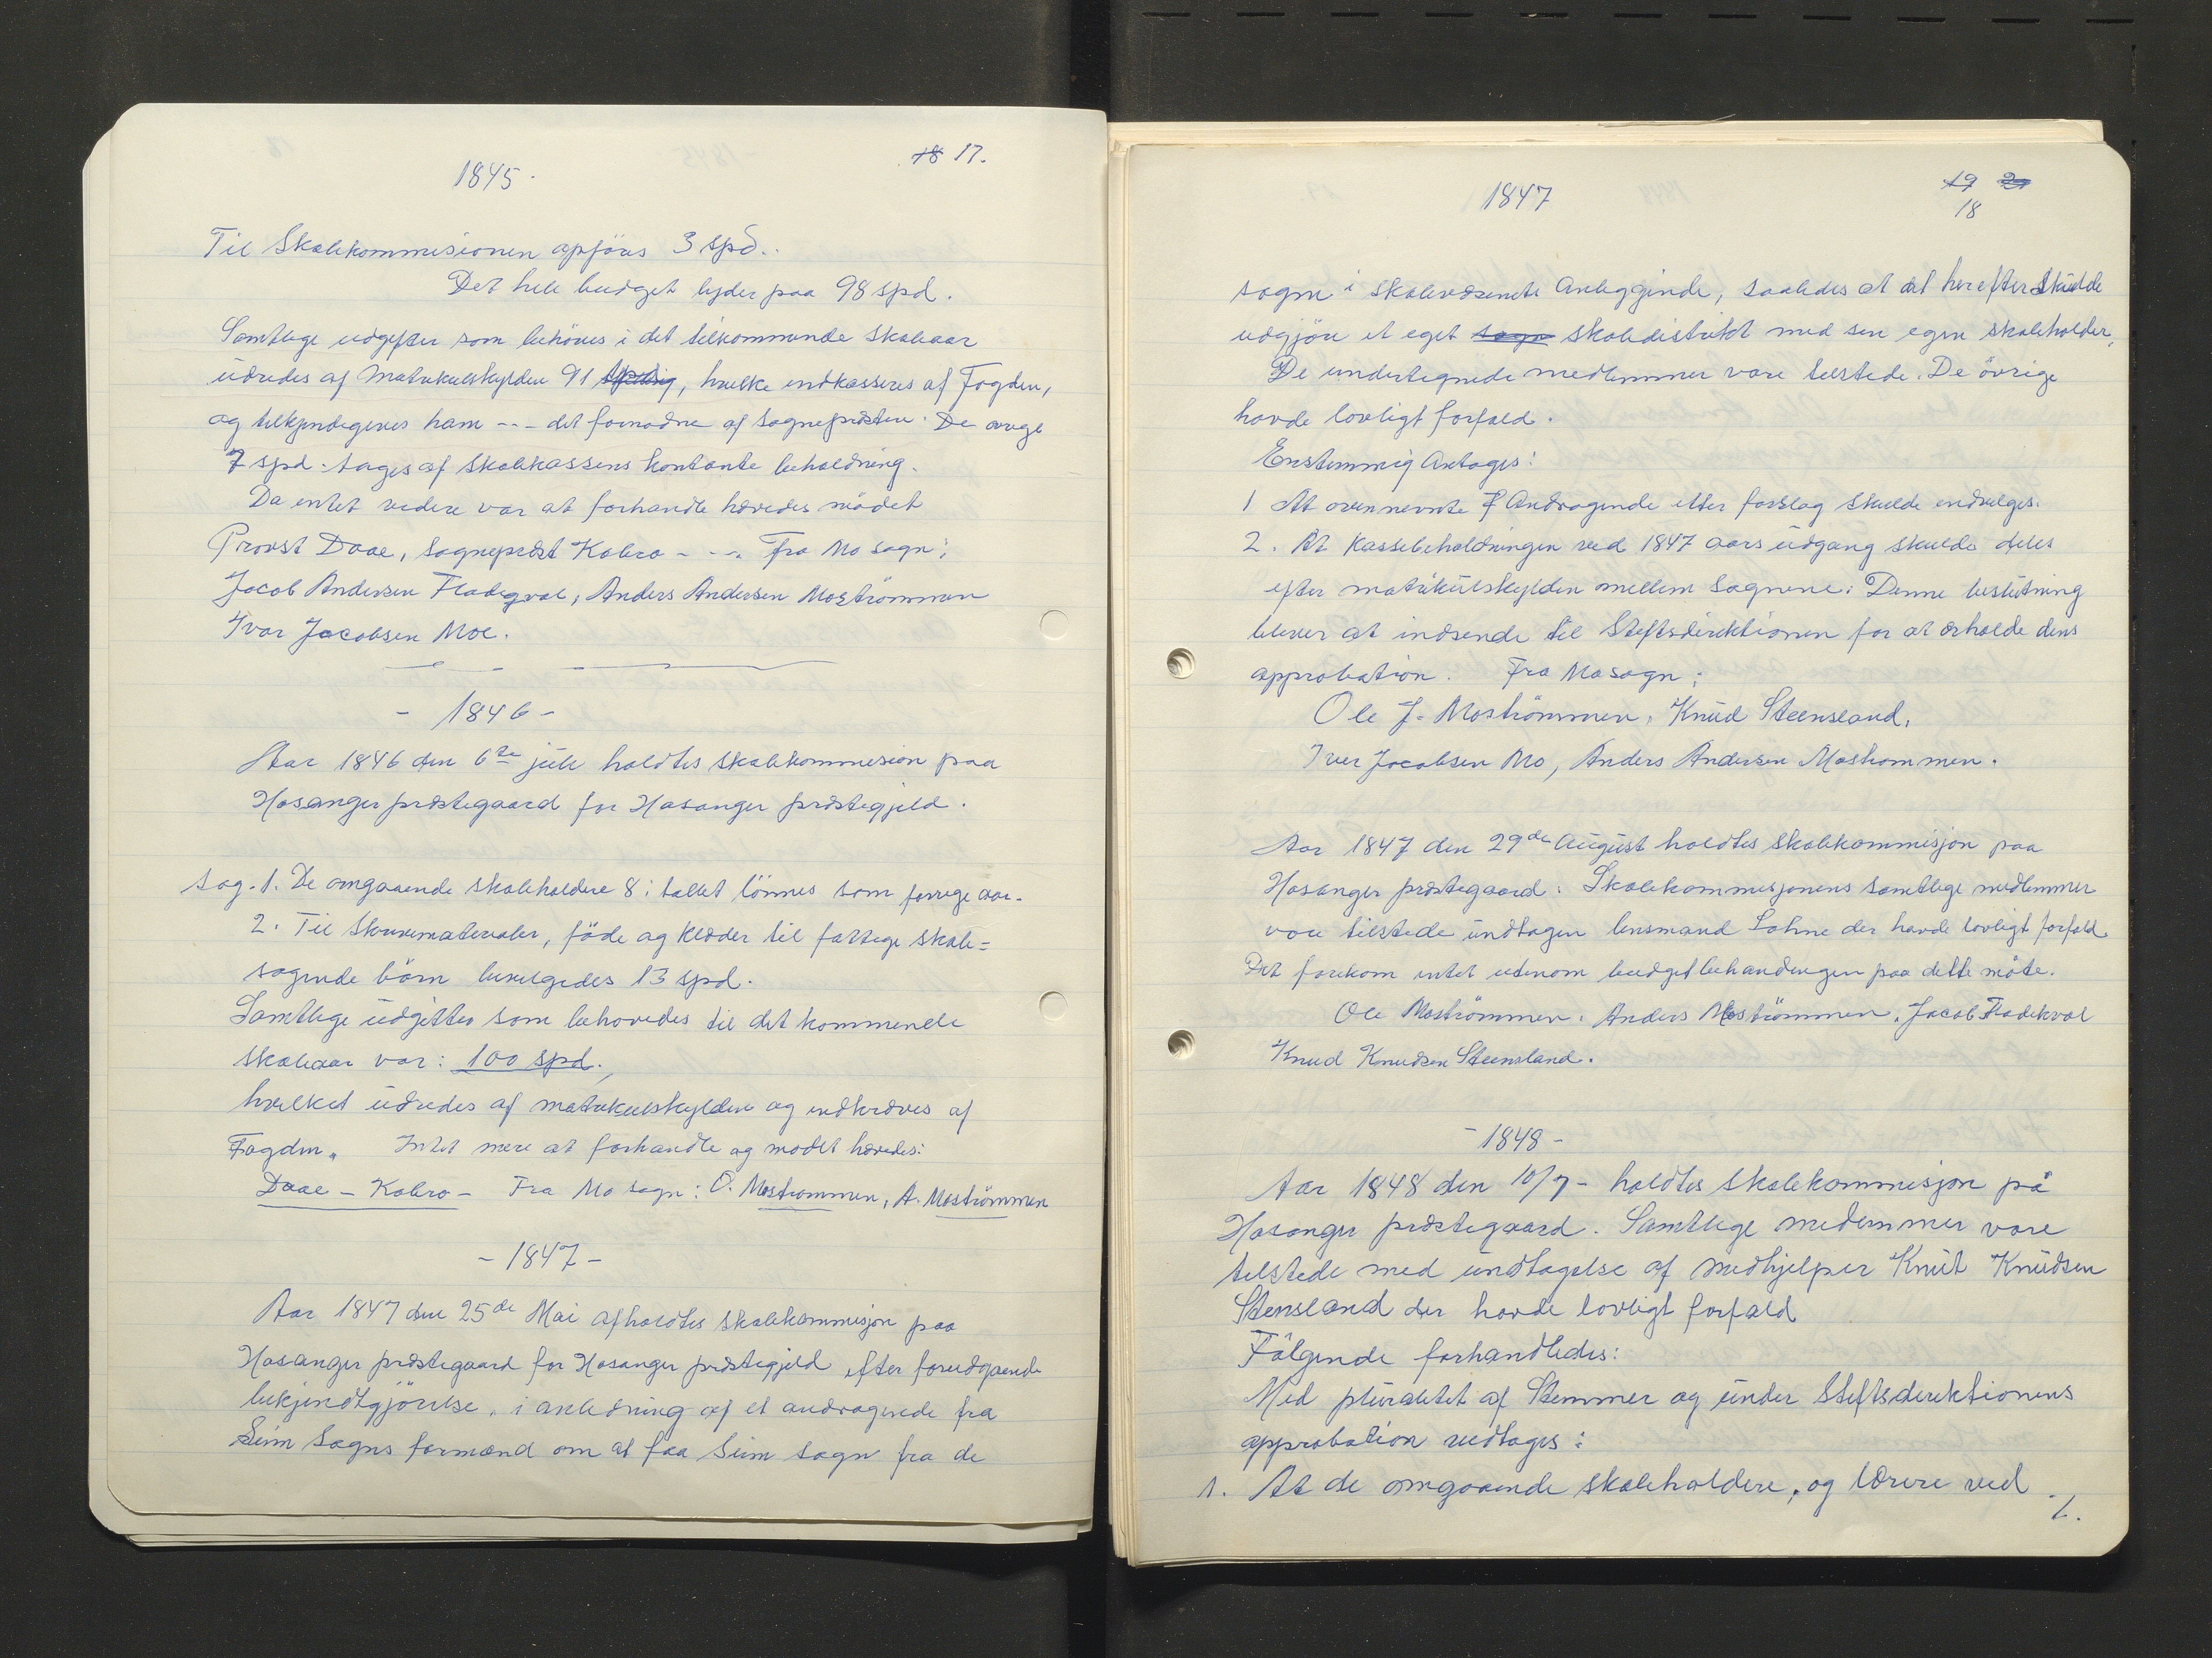 1845.
18 17.
Til Skolekommisionen opföres 3 spd..
Det hele budget lyder paa 98 spd.
Samtlige udgifter som behöves i det tilkommende skoleaar
üdredes af Matrikulskylden 91, hvilke indkasseres af Fogden,
og tilkjendegives ham --- det fornødne af Sognepræsten. De övrige
7 spd. tages af Skolekassens kontante beholdning.
Da intet videre var at forhandle hævedes mödet
Provst Daae, Sognepræst Kobro - - -. Fra Mo sogn:
Jacob Andersen Fladeqval, Anders Andersen Moströmmen
Ivar Jacobsen Moe.
- 1846 -
Aar 1846 den 6te jüli holdtes Skolekommision paa
Hosanger præstegaard for Hosanger præstegjeld.
Sag. 1. De omgaaende skoleholdere 8 i tallet lönnes som forrige aar.
2. Til Skrivematerialer, föde og klæder til fattige skole=
sögende börn bevilgedes 13 spd.
Samtlige üdgifter som behovedes til det kommende
skoleaar var: 100 spd.,
hvilket üdredes af matrikulskylden og indkræves af
Fogden. Intet mere at forhandle og mödet hævedes:
Daae - Kobro - Fra Mo sogn: O. Moströmmen, A. Moströmmen
- 1847 -
Aar 1847 den 25de Mai afholdtes skolekommisjon paa
Hosanger præstegaard for Hosanger præstegjeld efter forudgaaende
bekjendtgjörelse, i anledning af et andragende fra
Seim Sogns formænd om at faa Seim sogn fra de
1847
19 20
18
sogne i skolevæsenets Anliggende, saaledes at det herefter skulde
udgjöre et eget sogn skoledistrikt med sin egen skoleholder.
De undertegnede medlemmer vare tilstede. De övrige
havde lovligt forfald.
Enstemmig Antoges:
1 At ovennevnte Andragende eller forslag skulde indvilges.
2. At Kassebeholdningen ved 1847 aars üdgang skulde deles
efter matrikülskylden mellem Sognene. Denne beslütning
bliver at indsende til Stiftsdirektionen for at erholde dens
approbation. Fra Mosogn:
Ole J. Moströmmen, Knüd Steensland,
Iver Jacobsen Mo, Anders Andersen Mostrommen.
Aar 1847 den 29de Aügüst holdtes Skolekommisjon paa
Hosanger præstegaard. Skolekommisjonens samtlige medlemmer
vare tilstede ündtagen lensmand Lohne der havde lovligt forfald.
Det forekom intet utenom budgetbehandlingen paa dette möte.
Ole Moströmmen. Anders Moströmmen. Jacob Fladekval
Knud Knudsen Steensland.
- 1848 -
Aar 1848 den 10/7 - holdtes Skolekommisjon på
Hosanger præstegaard. Samtlige medemmer vare
tilstede med ündtagelse af medhjelper Knüt Knüdsen
Stensland der havde lovligt forfald
Fölgende forhandledes:
Med plüralitet af Stemmer og ünder Stiftsdirektionens
approbation vedtoges:
1. At de omgaaende skoleholdere, og lærere ved
./.